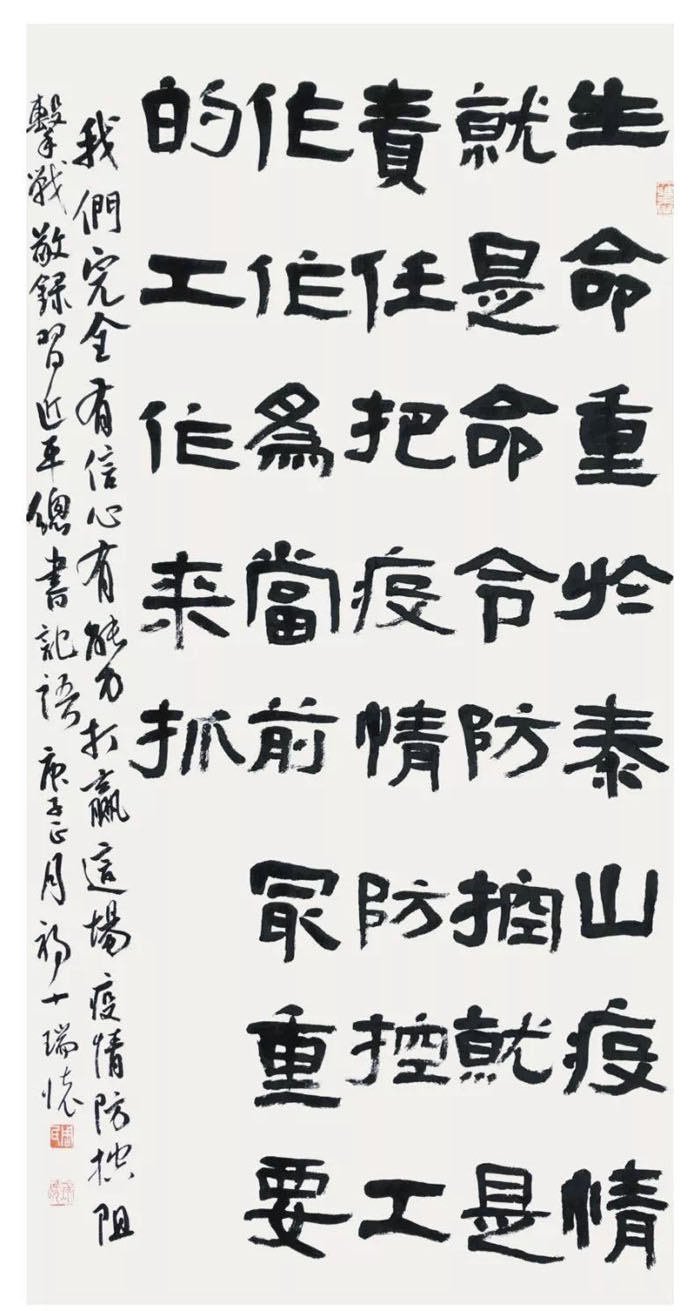 生命重於泰山疫情
就是命令防控就是
責任把疫情防控工
作作爲當前冣重要
的工作来抓
我們完全有信心有能力打贏這場疫情防控阻
擊戰敬録習近平總書記語庚子正月初十瑞